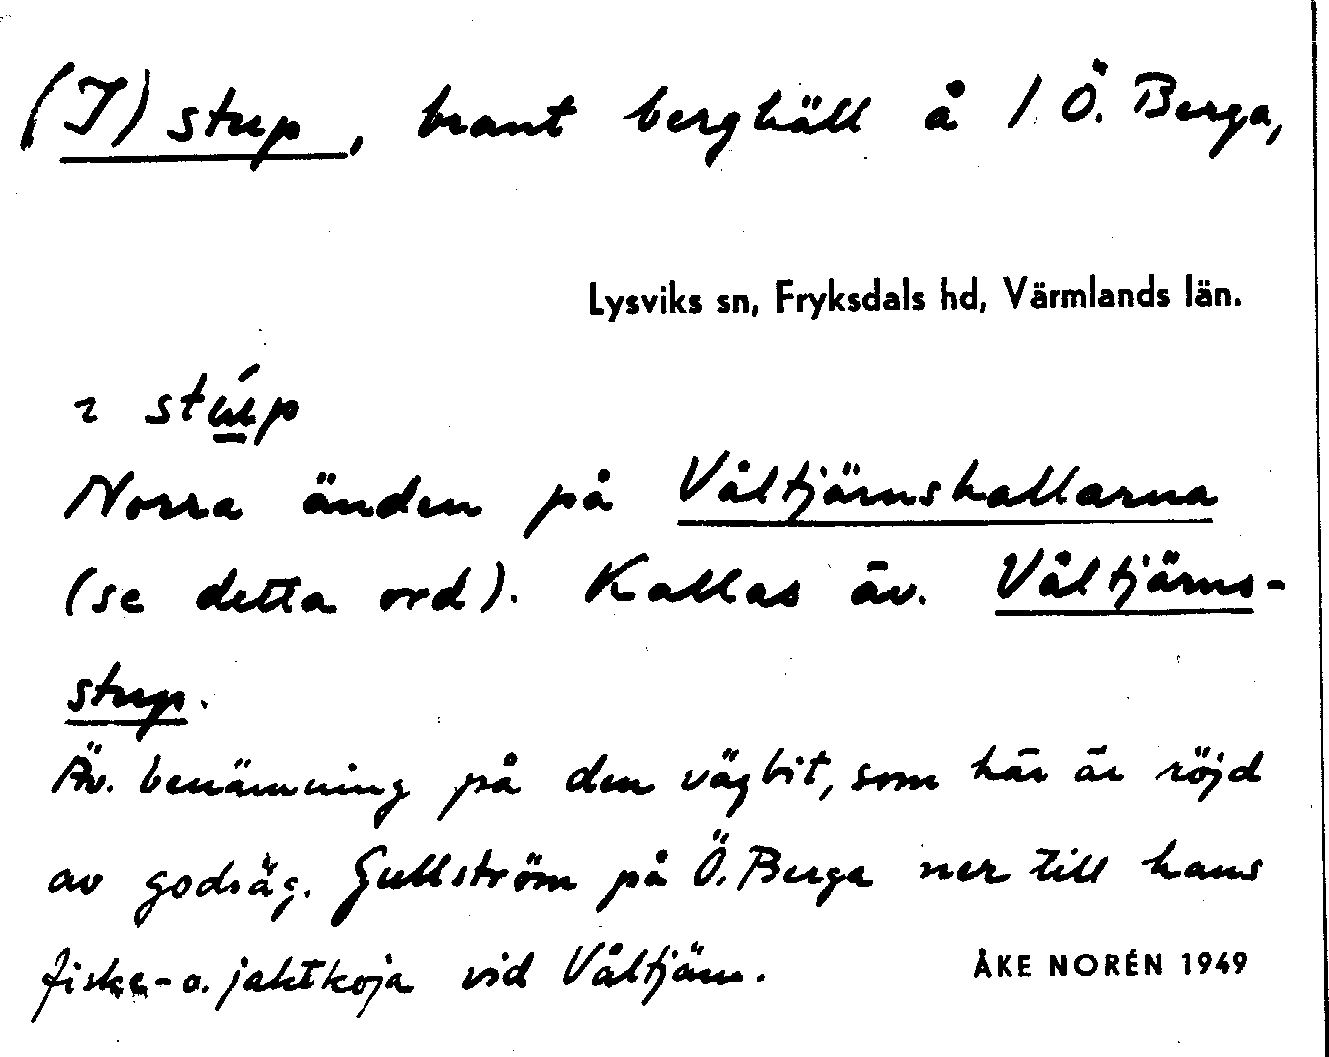 (I) stup, brant berghäll å 1 Ö. Berga,
Lysviks sn, Fryksdals hd, Värmlands län.
ɩ stúp
Norra änden på Våltjärnshallarna
(se detta ord). Kallas äv. Våltjärns-
stup.
Äv. benämning på den vägbit, som här är röjd
av godsäg. Gullström på Ö. Berga ner till hans
fiske- o. jaktkoja vid Våltjärn.
ÅKE NORÉN 1949